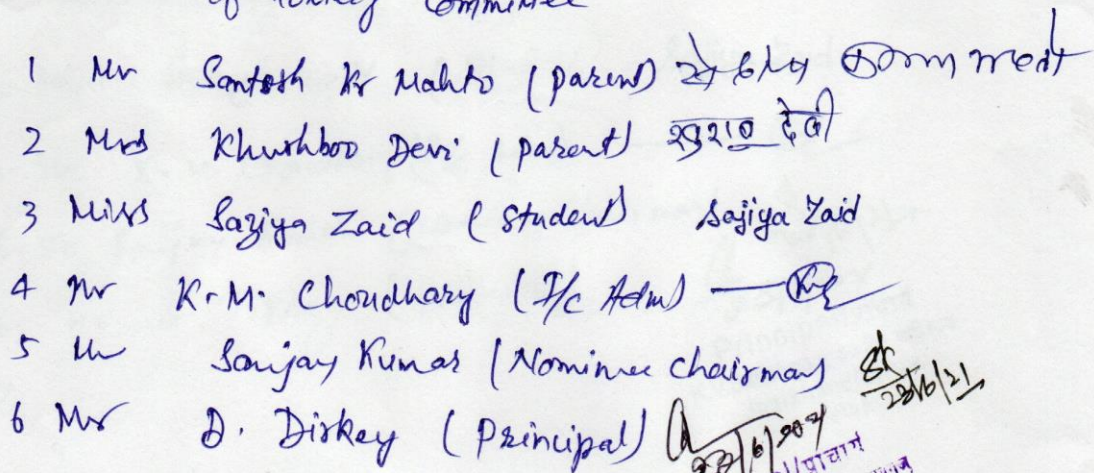 Committee
1 Mr Santosh Kr Mahto (Parent) संतोष कुमार महतो
2 Mrs Khushboo Devi (Parent) खुशबु देवी
3 Miss Saziya Zaid (Student) Sajiya Zaid
4 Mr K.M. Choudhary (I/c Adm)
5 Mr Sanjay Kumar (Nominee Chairman) SK 23/6/21
6 Mr D. Dirkey (Principal)